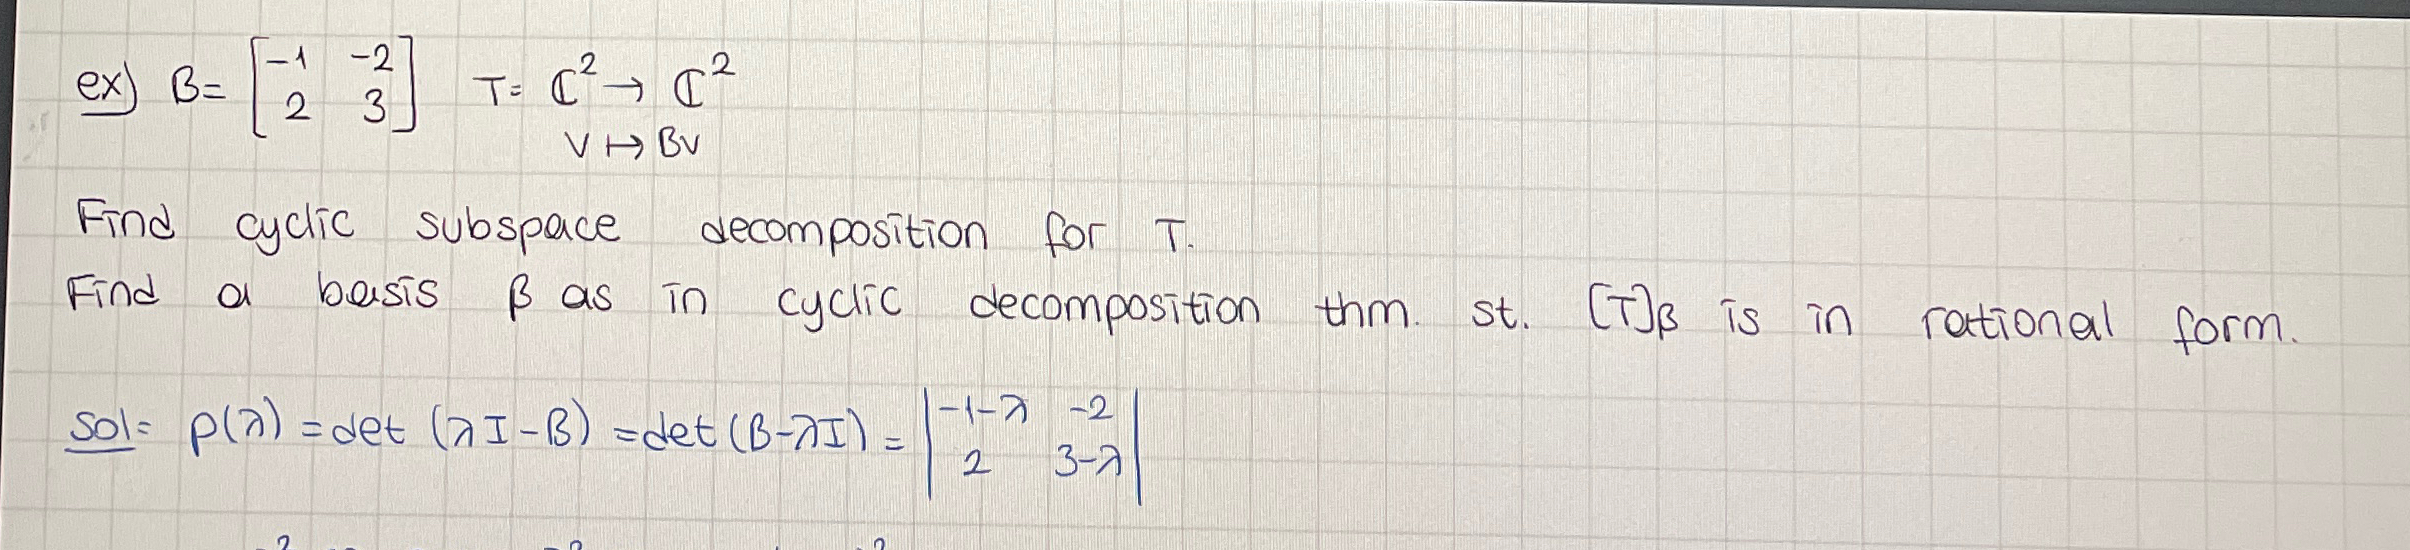 ex) B = [ -1 -2 ; 2 3 ] T = ℂ² → ℂ²
v ↦ Bv
Find cyclic subspace decomposition for T.
Find a basis β as in cyclic decomposition thm. st. [T]β is in rational form.
Sol= p(λ) = det (λI - B) = det (B-λI) = | -1-λ -2 ; 2 3-λ |